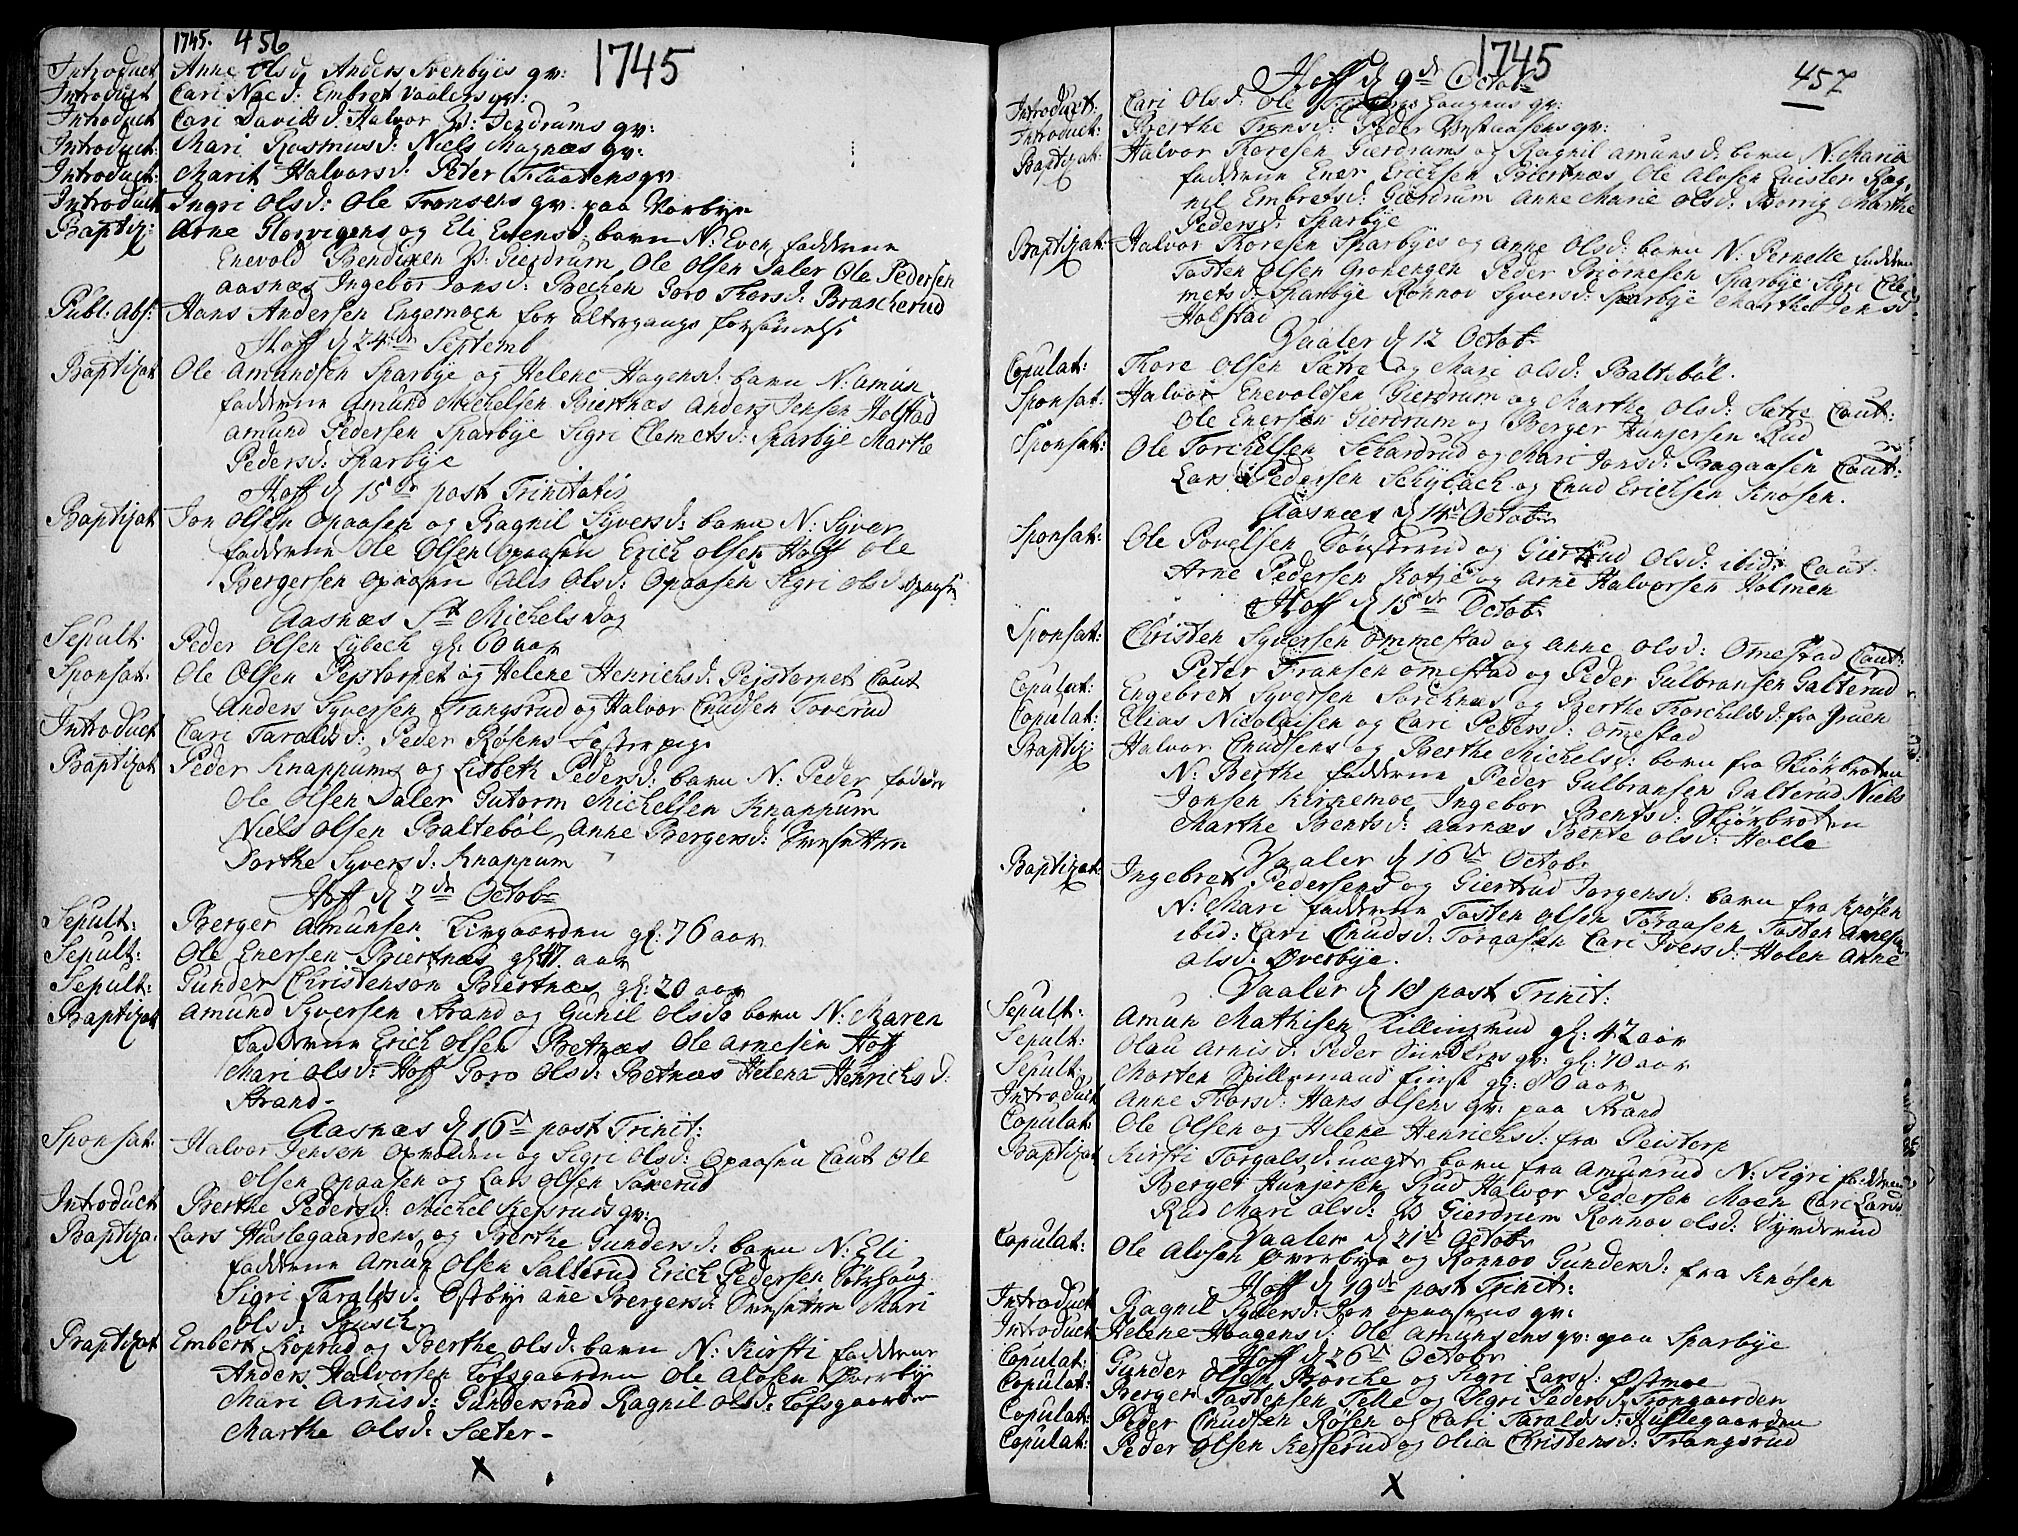 1745. 456
1745
Introduct Anne Olsd. Anders Svenbyes qv:
Introduct Cari Naed: Embret Vaalers qv:
Introduct Cari Davidsd: Halvor V: Gerdrums qv:
Introduct: Mari Rasmusd: Niels Magnæs qv:
Introduct: Marit Halvorsd. Peter Flaatens qv:
Introduct Ingri Olsd: Ole Tronsens qv: paa Vorbye
Baptiz: Arne Glorvigens og Eli Evensd: barn N: Even fadderne
Enevold Bendixen V: Gierdrum Ole Olsen Daler Ole Pedersen
aasnæs Ingebor Jonsd: Bechen Goro Thorsd: Brascherud
Publ: abs: Hans Andersen Engemoen for altergangs forsømmelse
Hoff d 24de Septemb
Baptizat Ole Amundsen Sparbye og Helene Hagensd: barn N: Amun
fadderne Amund Michelsen Biertnæs Anders Jensen Holstad
Amund Pedersen Sparbye Sigri Clemetsd: Sparbye Marthe
Pedersd: Sparbye
Hoff d 15de post Trinitatis
Baptizat Jon Olsen Opaasen og Ragnil Syversd: barn N: Syver
fadderne Ole Olsen Opaasen Erich Olsen Hoff Ole
Bergersen Opaasen Alis Olsd: Opaasen Sigri Olsd Opaasen
Aasnæs St Michels Dag
Sepult: Peder Olsen Lybech gl: 60 aar
Sponsat: Ole Olsen Peistorpet og Helene Henrichsd: Peistorpet Caut
Anders Syversen Trangsrud og Halvor Cnudsen Toverud
Introduct Cari Taraldsd: Peder Røsens festerpige
Baptizat Peder Knappums og Lisbeth Pedersd: barn N: Peder faddere
Ole Olsen Daler Gutorm Michelsen Knappum
Niels Olsen Baltebøl Anne Bergersd: Svesetren
Dorthe Syversd: Knappum
Hoff d 2de Octob
Sepult: Berger Amunsen Kirgaarden gl: 76 aar
Sepult: Ole Enersen Biertnæs gl: 47 aar
Sepult: Gunder Christenson Biertnæs gl: 20 aar
Baptizat Amund Syversen Strand og Gunil Olsd: barn N: Maren
fadderne Erich Olsen Betnæs Ole Arnesen Hoff
Mari Olsd: Hoff Goro Olsd: Betnæs Helena Henrichsd:
Strand-
Aasnæs d 16de post Trinit:
Sponsat: Halvor Jensen Opvolden og Sigri Olsd: Opaasen Caut Ole
Olsen Opaasen og Lars Olsen Sorerud
Introduct Berthe Pedersd: Michel Kesseruds qv:
Baptiza: Lars Huslegaardens og Berthe Gundersd: barn N: Eli
fadderne Amun Olsen Salterud Erich Pedersen Sørhaug
Sigri Taraldsd: Østbye Ane Bergersd: Svesetren Mari
Olsd: Busch
Baptizat Embert Koprud og Berthe Olsd: barn N: Kirsti fadderne
Anders Halvorsen Lofsgaarden Ole Alvsen Overbye
Mari Arnisd: Gundersrud Ragnil Olsd: Lofsgaarden
Marthe Olsd: Sæter-
X
1745
457
Hoff d 9de Octob
Introduct: Cari Olsd: Ole Haugens qv:
Introduct: Berthe Tronsd: Peder Vestaasens qv:
Baptizat: Halvor Thoresen Gierdrums og Ragnil Amunsd: barn N: Maria
fadderne Ener Erichsen Biertnæs Ole Alvsen Qvisler Rag,
nil Embretsd: Gierdrum Anne Marie Olsd: Borrig Marthe
Pedersd: Sparbye
Baptizat Halvor Thoresen Sparbyes og Anne Olsd: barn N: Pernelle faddere
Tosten Olsen Gronengen Peder Biørnesen Sparbye Sigri Cle
metsd: Sparbye Ronnov Syversd: Sparbye Marthe Jensd:
Holstad
Vaaler d 12 Octob
Copulat: Thore Olsen Sætre og Mari Olsd: Baltebøl.
Sponsat: Halvor Enevoldsen Gierdrum og Marthe Olsd: Sætre Caut:
Ole Enersen Gierdrum og Berger Hansersen Rud
Sponsat: Ole Torchelsen Schardrud og Mari Jonsd: Bagaasen Caut:
Lars Pedersen Schybach og Cnud Erichsen Knøsen.
Aasnæs d 14de Octob
Sponsat: Ole Povelsen Sønsterud og Giertrud Olsd: ibid: Caut:
Arne Pedersen Kotje og Arne Halvorsen Holmen
Hoff d 15de Octob
Sponsat: Christen Syversen Ommestad og Anne Olsd: Omestad Caut:
Peter Fransen Omestad og Peder Gulbransen Galterud
Copulat: Engebret Syversen Sorchnæs og Berthe Thorchildsd: fra Gruen
Copulat: Elias Nicolaisen og Cari Pedersd: Omestad
Baptiz: Halvor Cnudsens og Berthe Michelsd: barn fra Skiørbroten
N: Berthe fadderne Peder Gulbransen Galterud Niels
Jonsen Kirkemoe Ingebor Bentsd: Skiørbroten
Marthe Bentsd: Aarnæs Bente Olsd: Holle
Vaaler d 16de Octob
Baptizat: Ingebret Pedersens og Giertrud Jorgensd: barn fra Knøsen
N: Mari fadderne Tosten Olsen Toraasen Tosten Arnesen
ibid: Cari Cnudsd: Toraasen Cari Iversd: Holen Anne
Olsd: Overbye.
Vaaler d 18 post Trinit:
Sepult: Amun Mathisen Killingrud gl: 42 aar
Sepult: Olau Arnisd: Peder qv: gl: 70 aar
Sepult: Morten Spillemand finsk gl: 80 aar
Introduct Anne Thorsd: Hans Olsens qv: paa Strand
Copulat Ole Olsen og Helene Henrichsd: fra Peistorp
Baptizat Kirsti Torgalsd: uægte barn fra Amunrud N: Sigri fadderne
Berger Hansersen Rud Halvor Pedersen Moen Cari Larsd
Rud Mari Olsd: V Gierdrum Ronnov Olsd: Synderud
Vaaler d 21de Octob
Copulat: Ole Alvsen Overbye og Ronnov Gundersd: fra Knøsen
Hoff d 19de post Trinit:
Introduct Ragnil Syversd: Jon Opaasens qv:
Introduct Helene Haagensd: Ole Amunsens qv: paa Sparbye
Hoff d 26de Octob
Copulat: Gunder Olsen Borche og Sigri Larsd: Østmoe
Copulat: Berger Tostensen Telle og Sigri Pedersd: Trongaarden
Copulat: Peder Cnudsen Røsen og Cari Taraldsd: Huslegaarden
Copulat: Peder Olsen Kesserud og Olia Christensd: Trangsrud
X